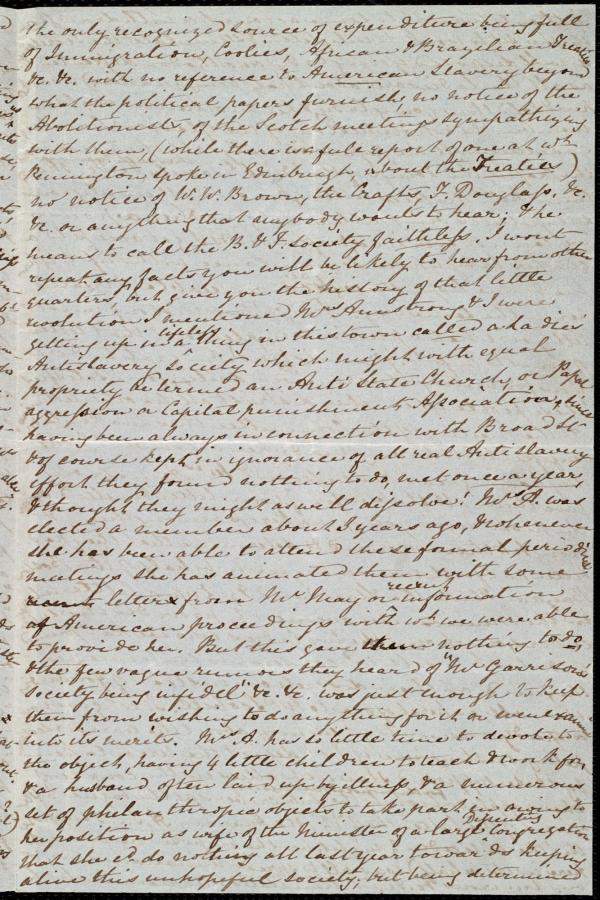 the only recognized source of expenditure being full
of Immigration, Coolies, African & Brazilian Treaties
&c. &c. with no reference to American Slavery beyond
what the political papers furnish, no notice of the
Abolitionists, of the Scotch meetings sympathizing
with them, (while there is a full report of one at wh.
Pennington spoke in Edinburgh, about the Treaties)
no notice of W. W. Brown, the Crafts, F. Douglass, &c.
&c. or anything that anybody wants to hear; the
means to call the B. & F. Society faithless. I wont
repeat any facts you will be likely to hear from other
quarters, but give you the history of that little
evolution I mentioned Mrs Armstrong & I were
getting up in a useless thing in this town called a Ladies'
Antislavery Society which might with equal
propriety be termed an Anti State Church, or Papal
aggression or Capital punishment Association, since
having been always in connection with Broad St
& of course kept in ignorance of all real Antislavery
effort they found nothing to do, met once a year,
& thought they might as well dissolve! Mrs A. was
elected a member about 3 years ago, & whenever
she has been able to attend these formal periodical
meetings she has animated them with some
recent letter from Mr May or information
of American proceedings with wh. we were able
to provide her. But this gave them nothing to do,
& the few vague rumours they heard of "Mr Garrison's
Society being infidel" &c. &c. was just enough to keep
them from wishing to do anything for it or even examine
into its merits. Mrs A. has so little time to devote to
the object, having 4 little children to teach & work for,
& a husband often laid up by illness, & a numerous
set of philanthropic objects to take part in owing to
her position as wife of the Minister of a large Dissenting congregation
that she cd. do nothing all last year towards keeping
alive this unhopeful society; but being determined